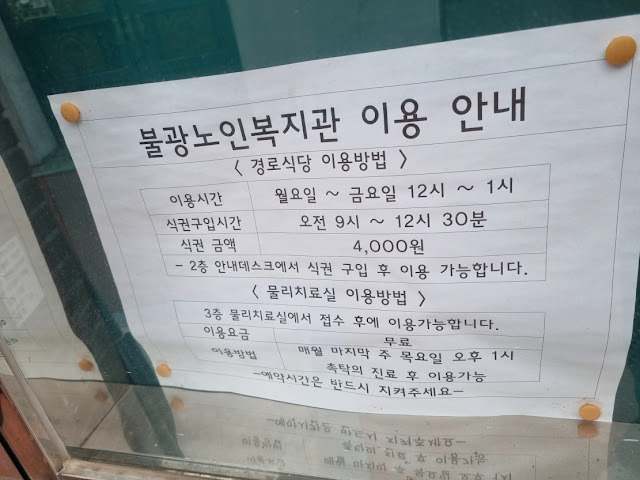 불광노인복지관 이용 안내
< 경로식당 이용방법 >
이용시간 월요일 ~ 금요일 12시 ~ 1시
식권구입시간 오전 9시 ~ 12시 30분
식권 금액 4,000원
- 2층 안내데스크에서 식권 구입 후 이용 가능합니다.
< 물리치료실 이용방법 >
3층 물리치료실에서 접수 후에 이용가능합니다.
이용요금 무료
이용방법 매월 마지막 주 목요일 오후 1시
촉탁의 진료 후 이용가능
-예약시간은 반드시 지켜주세요-